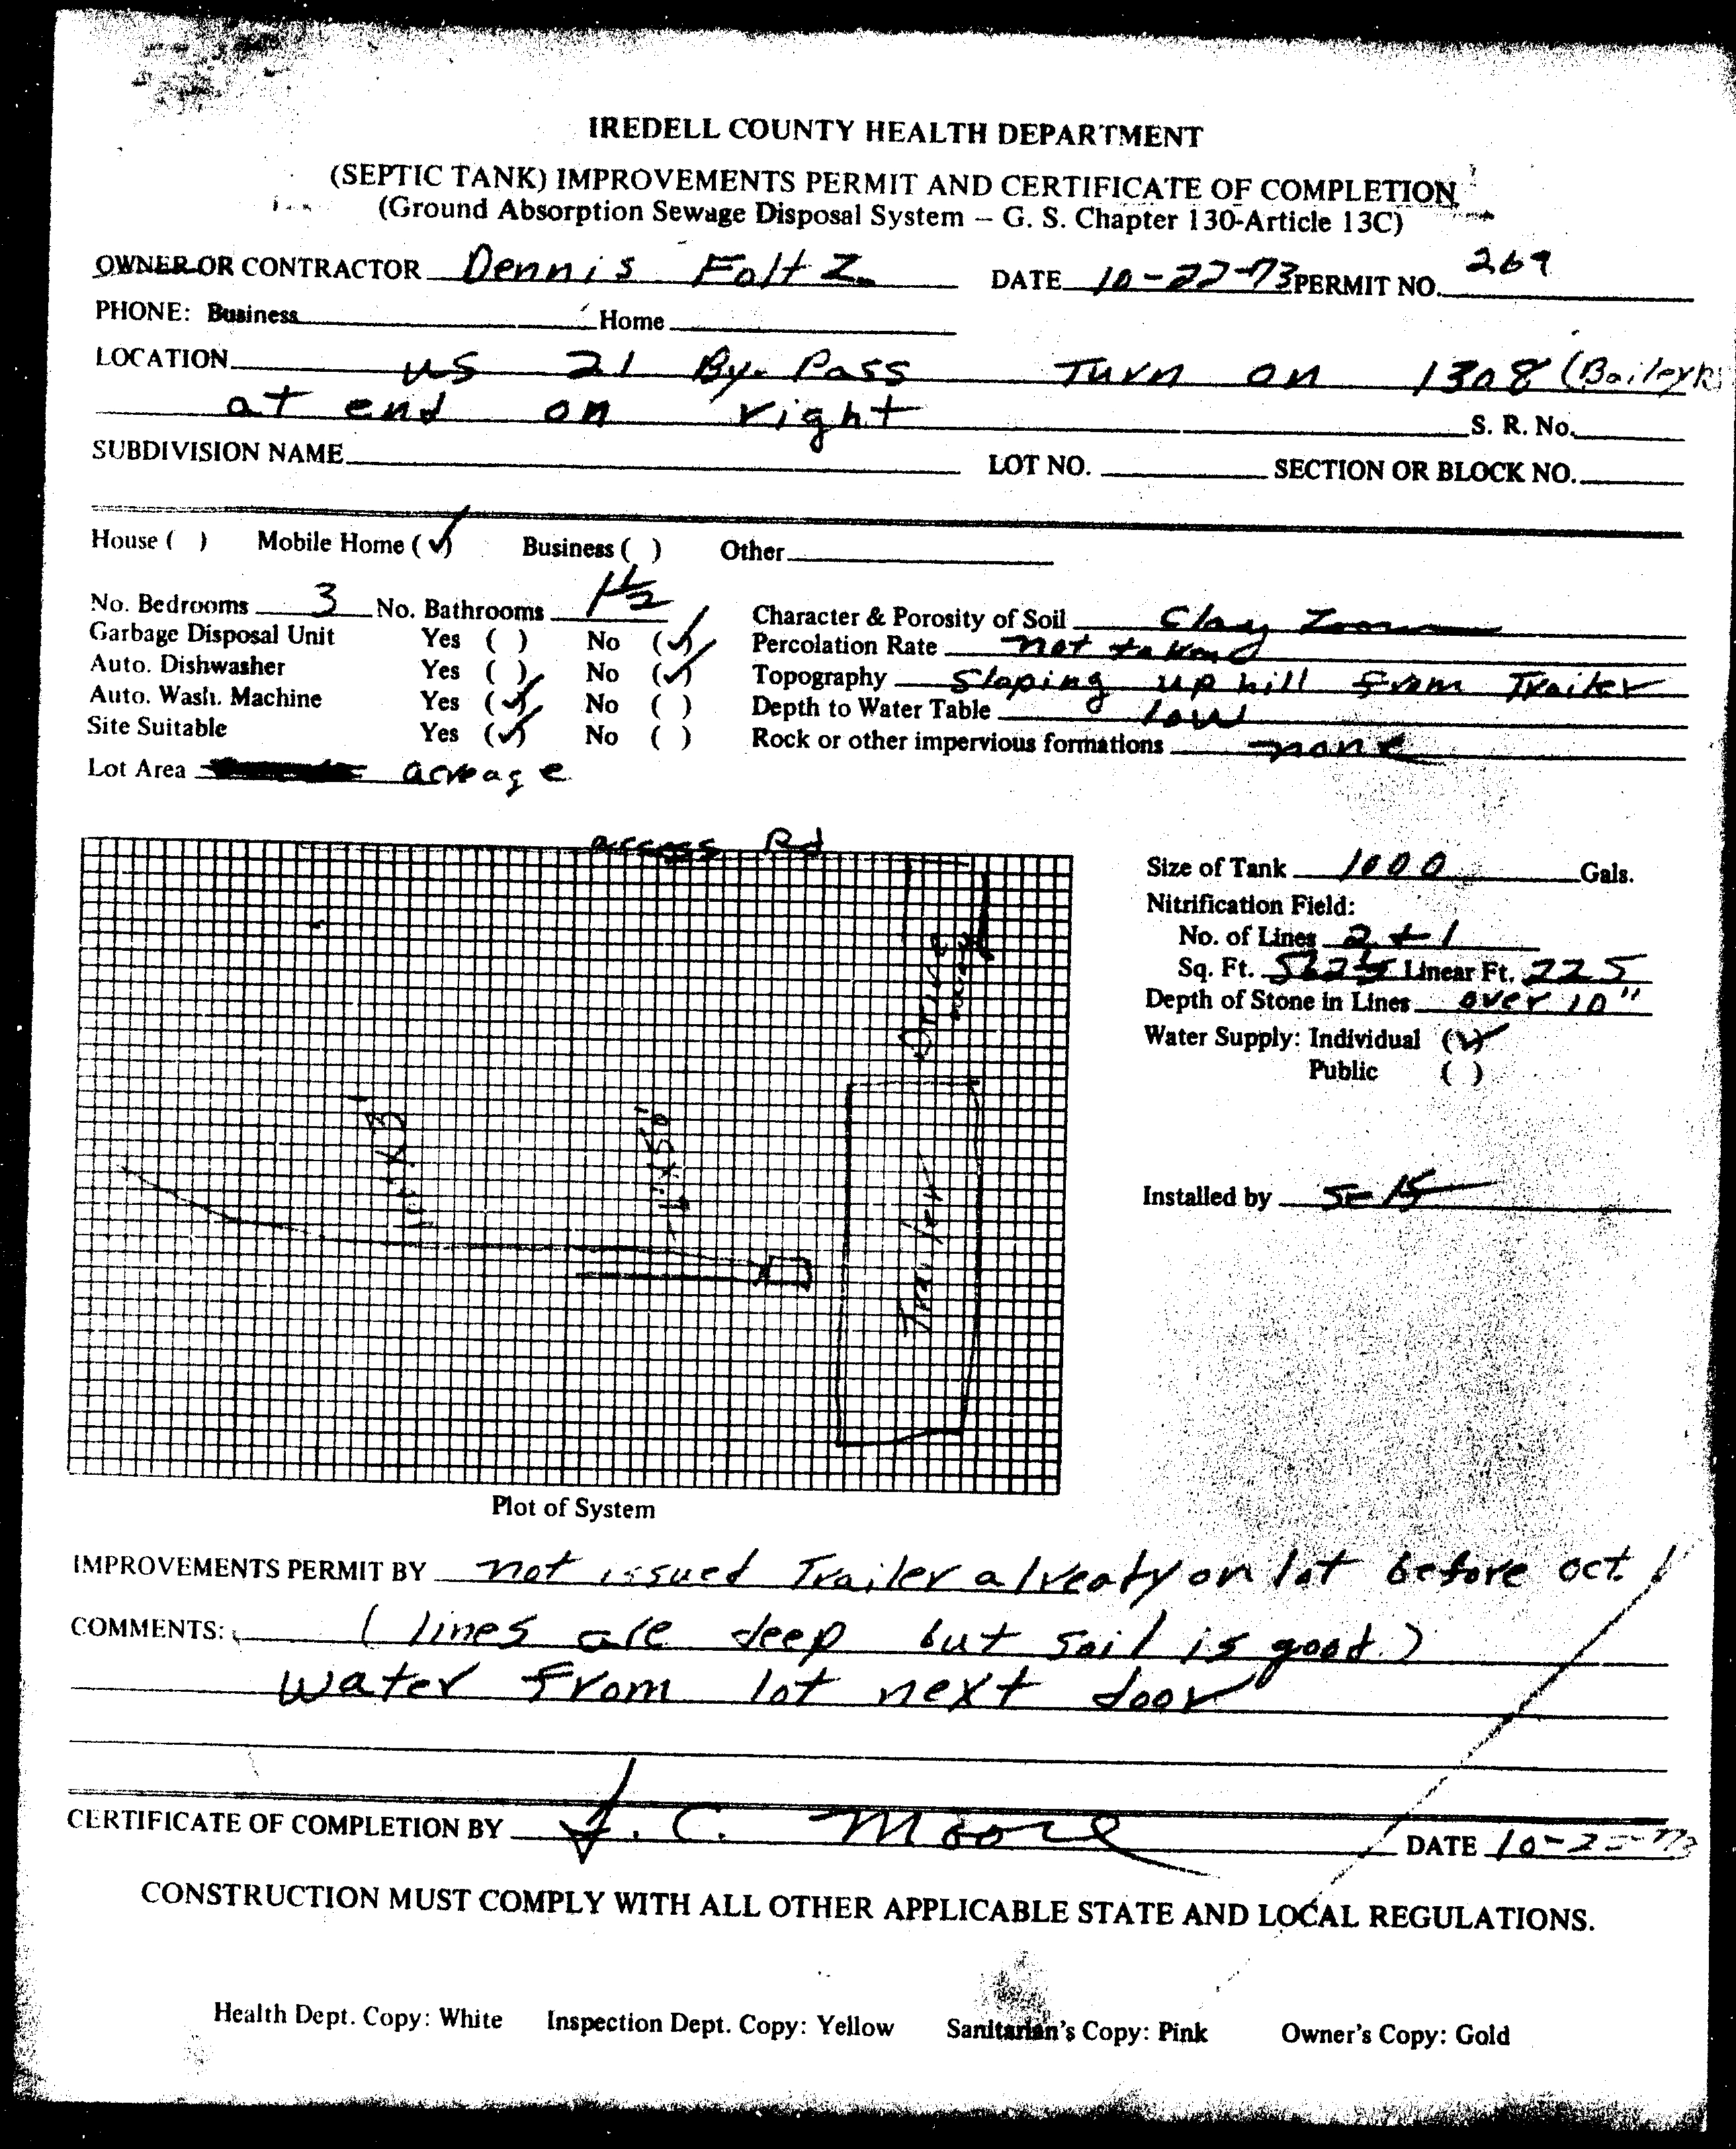 IREDELL COUNTY HEALTH DEPARTMENT
(SEPTIC TANK) IMPROVEMENTS PERMIT AND CERTIFICATE OF COMPLETION
(Ground Absorption Sewage Disposal System – G. S. Chapter 130-Article 13C)
OWNER OR CONTRACTOR Dennis Foltz DATE 10-22-73 PERMIT NO. 269
PHONE: Business Home
LOCATION US 21 By-Pass Turn on 1308 (Bailey
at end on right S. R. No.
SUBDIVISION NAME LOT NO. SECTION OR BLOCK NO.
House ( ) Mobile Home (✓) Business ( ) Other
No. Bedrooms 3 No. Bathrooms 1½ Character & Porosity of Soil Clay
Garbage Disposal Unit Yes ( ) No (✓) Percolation Rate not taken
Auto. Dishwasher Yes ( ) No (✓) Topography Sloping up hill from Trailer
Auto. Wash. Machine Yes (✓) No ( ) Depth to Water Table low
Site Suitable Yes (✓) No ( ) Rock or other impervious formations none
Lot Area acreage
access Rd
Size of Tank 1000 Gals.
Nitrification Field:
No. of Lines 2 + 1
Sq. Ft. Linear Ft. 225
Depth of Stone in Lines over 10"
Water Supply: Individual (✓)
Public ( )
Drive way
Trailer
Installed by
Plot of System
IMPROVEMENTS PERMIT BY not issued Trailer already on lot before oct. 1
COMMENTS: (lines are deep but soil is good.)
water from lot next door
CERTIFICATE OF COMPLETION BY J. C. Moore DATE
CONSTRUCTION MUST COMPLY WITH ALL OTHER APPLICABLE STATE AND LOCAL REGULATIONS.
Health Dept. Copy: White Inspection Dept. Copy: Yellow Sanitarian's Copy: Pink Owner's Copy: Gold